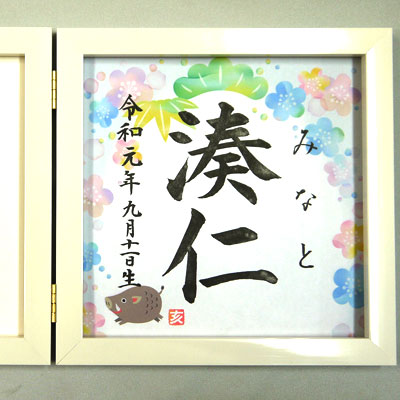 みなと
湊仁
令和元年九月十一日生
亥